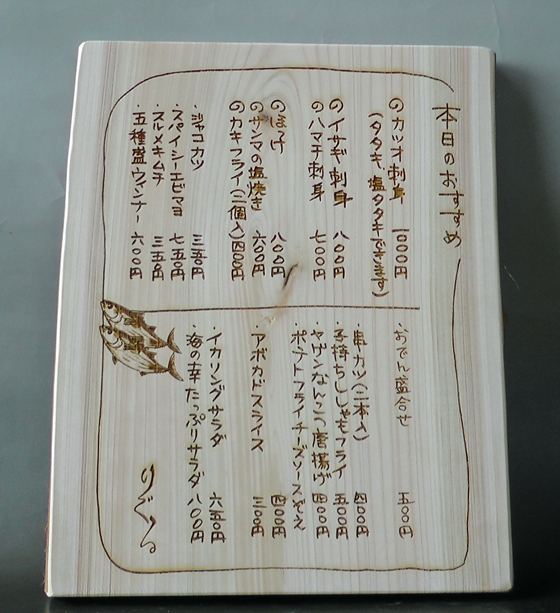 本日のおすすめ
のカツオ刺身 一〇〇〇円
(タタキ、塩タタキできます)
のイサギ刺身 八〇〇円
のハマチ刺身 七〇〇円
のほっけ 八〇〇円
のサンマの塩焼き 六〇〇円
のカキフライ(二個入) 四〇〇円
・ジャコカツ 三五〇円
・スパイシーエビマヨ 七五〇円
・スルメキムチ 三五〇円
・五種盛ウィンナー 六〇〇円
・おでん盛合せ 五〇〇円
・串カツ(二本入) 四〇〇円
・子持ちししゃもフライ 五〇〇円
・ヤゲンなんこつ唐揚げ 四〇〇円
・ポテトフライチーズソースぞえ 四〇〇円
・アボカドスライス 三〇〇円
・イカリングサラダ 六五〇円
・海の幸たっぷりサラダ 八〇〇円